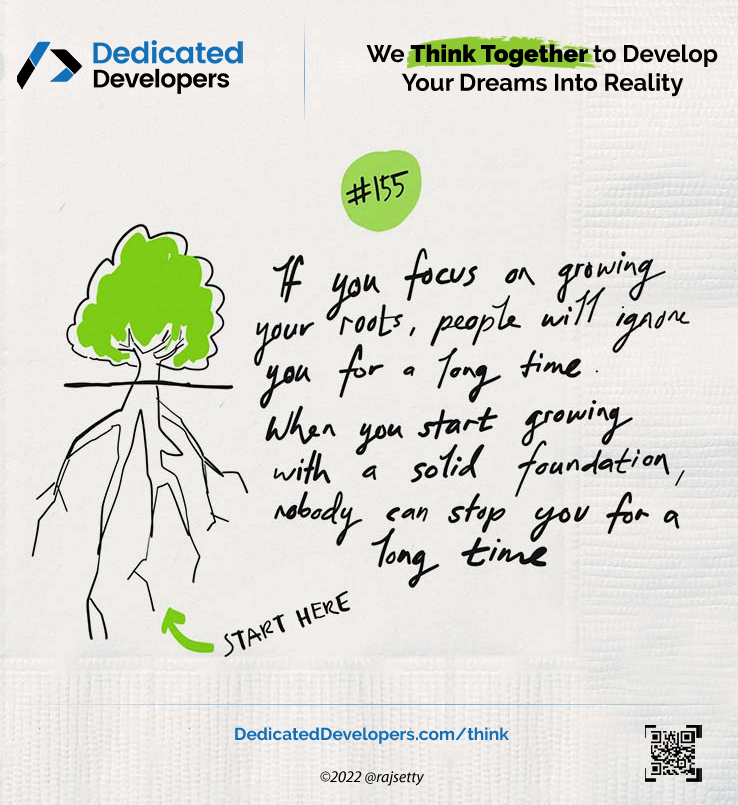 Dedicated
Developers
We Think Together to Develop
Your Dreams Into Reality
#155
If you focus on growing
your roots, people will ignore
you for a long time.
When you start growing
with a solid foundation,
nobody can stop you for a
long time
START HERE
DedicatedDevelopers.com/think
©2022 @rajsetty